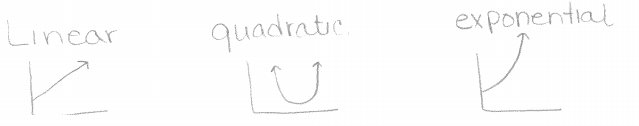 Linear
quadratic.
exponential